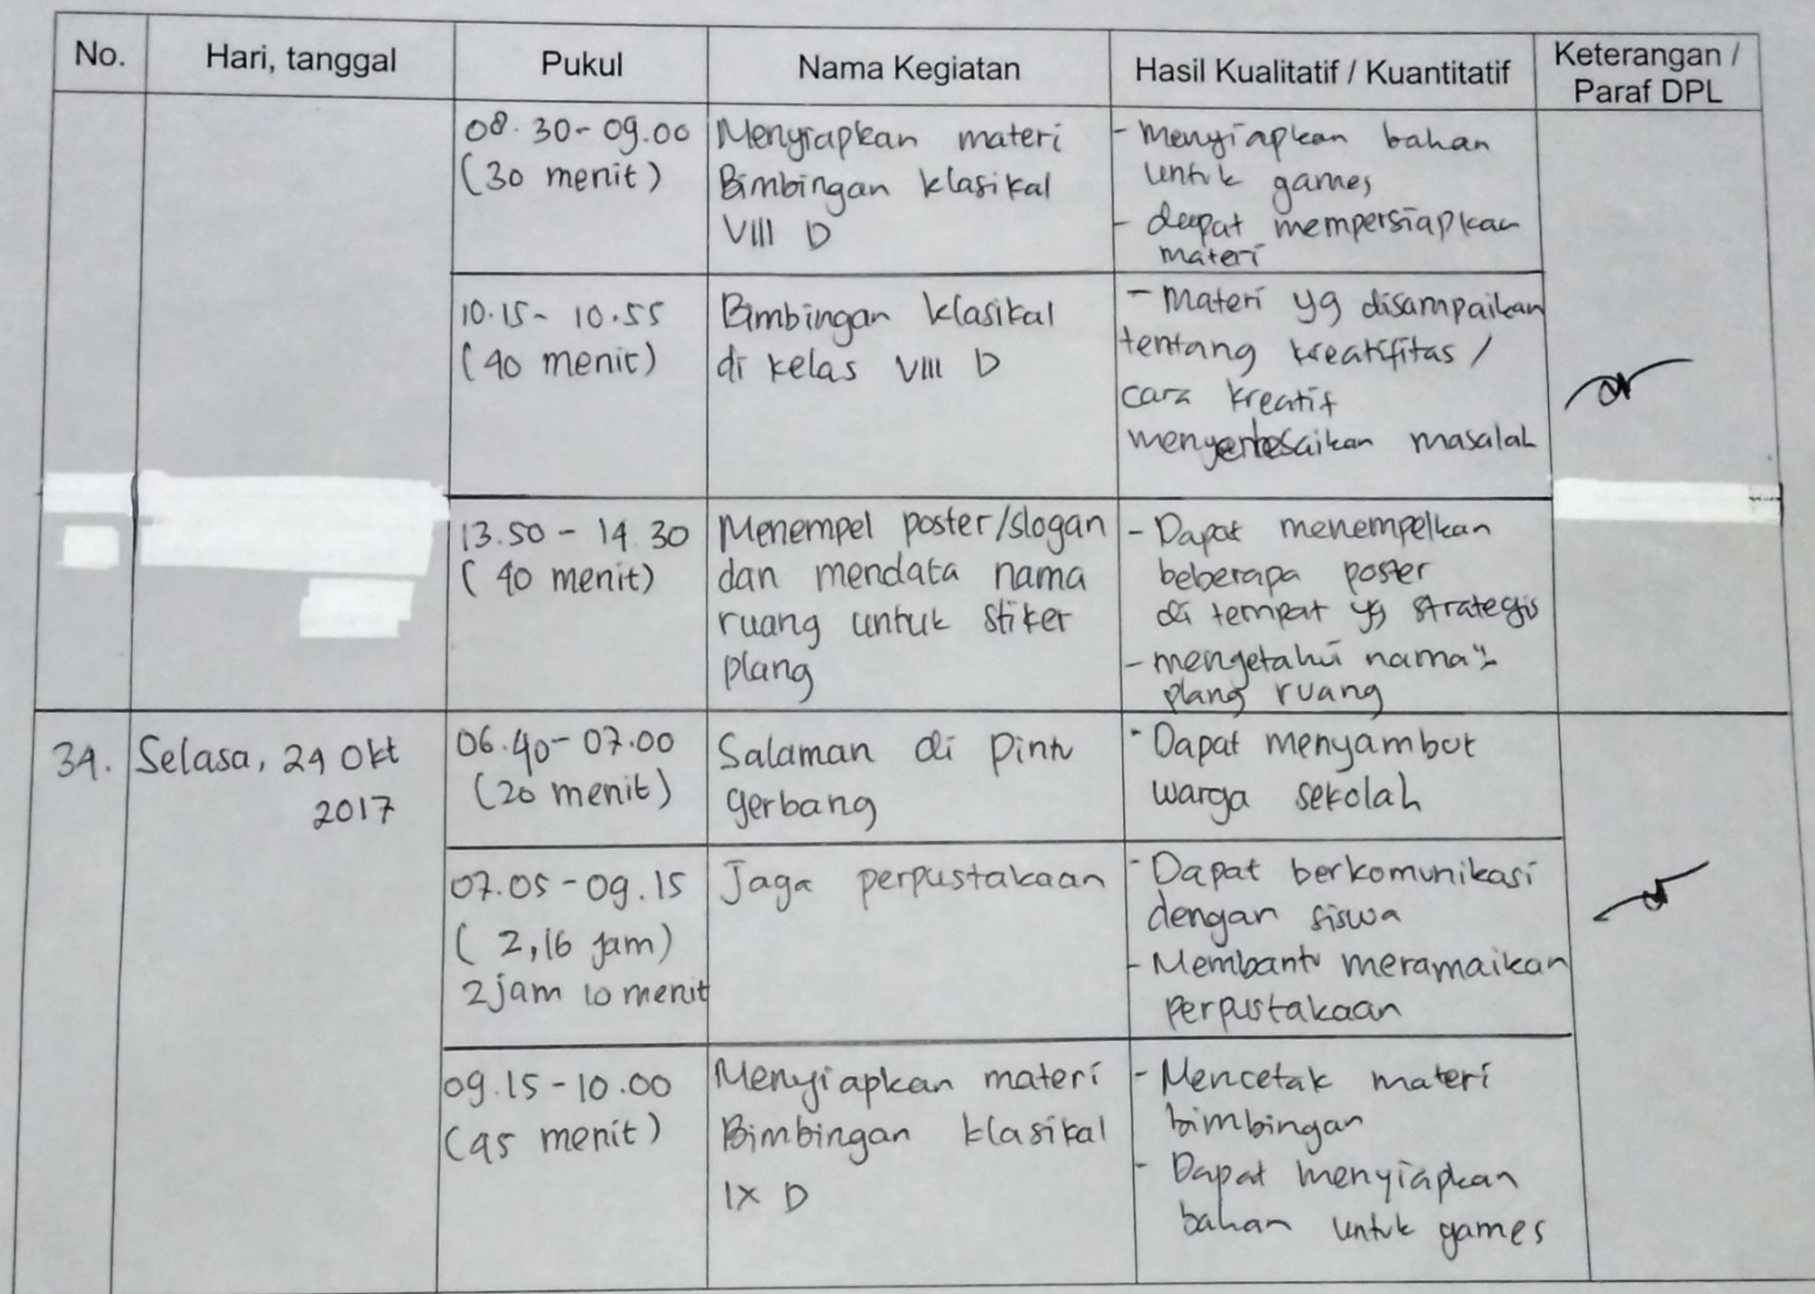 No.
Hari, tanggal
Pukul
Nama Kegiatan
Hasil Kualitatif / Kuantitatif
Keterangan /
Paraf DPL
08.30-09.00
(30 menit)
Menyiapkan materi
Bimbingan klasikal
VIII D
- menyiapkan bahan
untuk games
- dapat mempersiapkan
materi
10.15- 10.55
(40 menit)
Bimbingan klasikal
di kelas VIII D
- Materi yg disampaikan
tentang kreatifitas /
cara kreatif
masalah
13.50 - 14.30
(40 menit)
Menempel poster/slogan
dan mendata nama
ruang untuk stiker
plang
- Dapat menempelkan
beberapa poster
di tempat yg strategis
- mengetahui nama"
plang ruang
34.
Selasa, 24 Okt
2017
06.40-07.00
(20 menit)
Salaman di pintu
gerbang
- Dapat menyambut
warga sekolah
07.05-09.15
(2,16 jam)
2 jam 10 menit
Jaga perpustakaan
- Dapat berkomunikasi
dengan siswa
- Membantu meramaikan
perpustakaan
09.15-10.00
(45 menit)
Menyiapkan materi
Bimbingan klasikal
IX D
- Mencetak materi
bimbingan
- Dapat menyiapkan
bahan untuk games